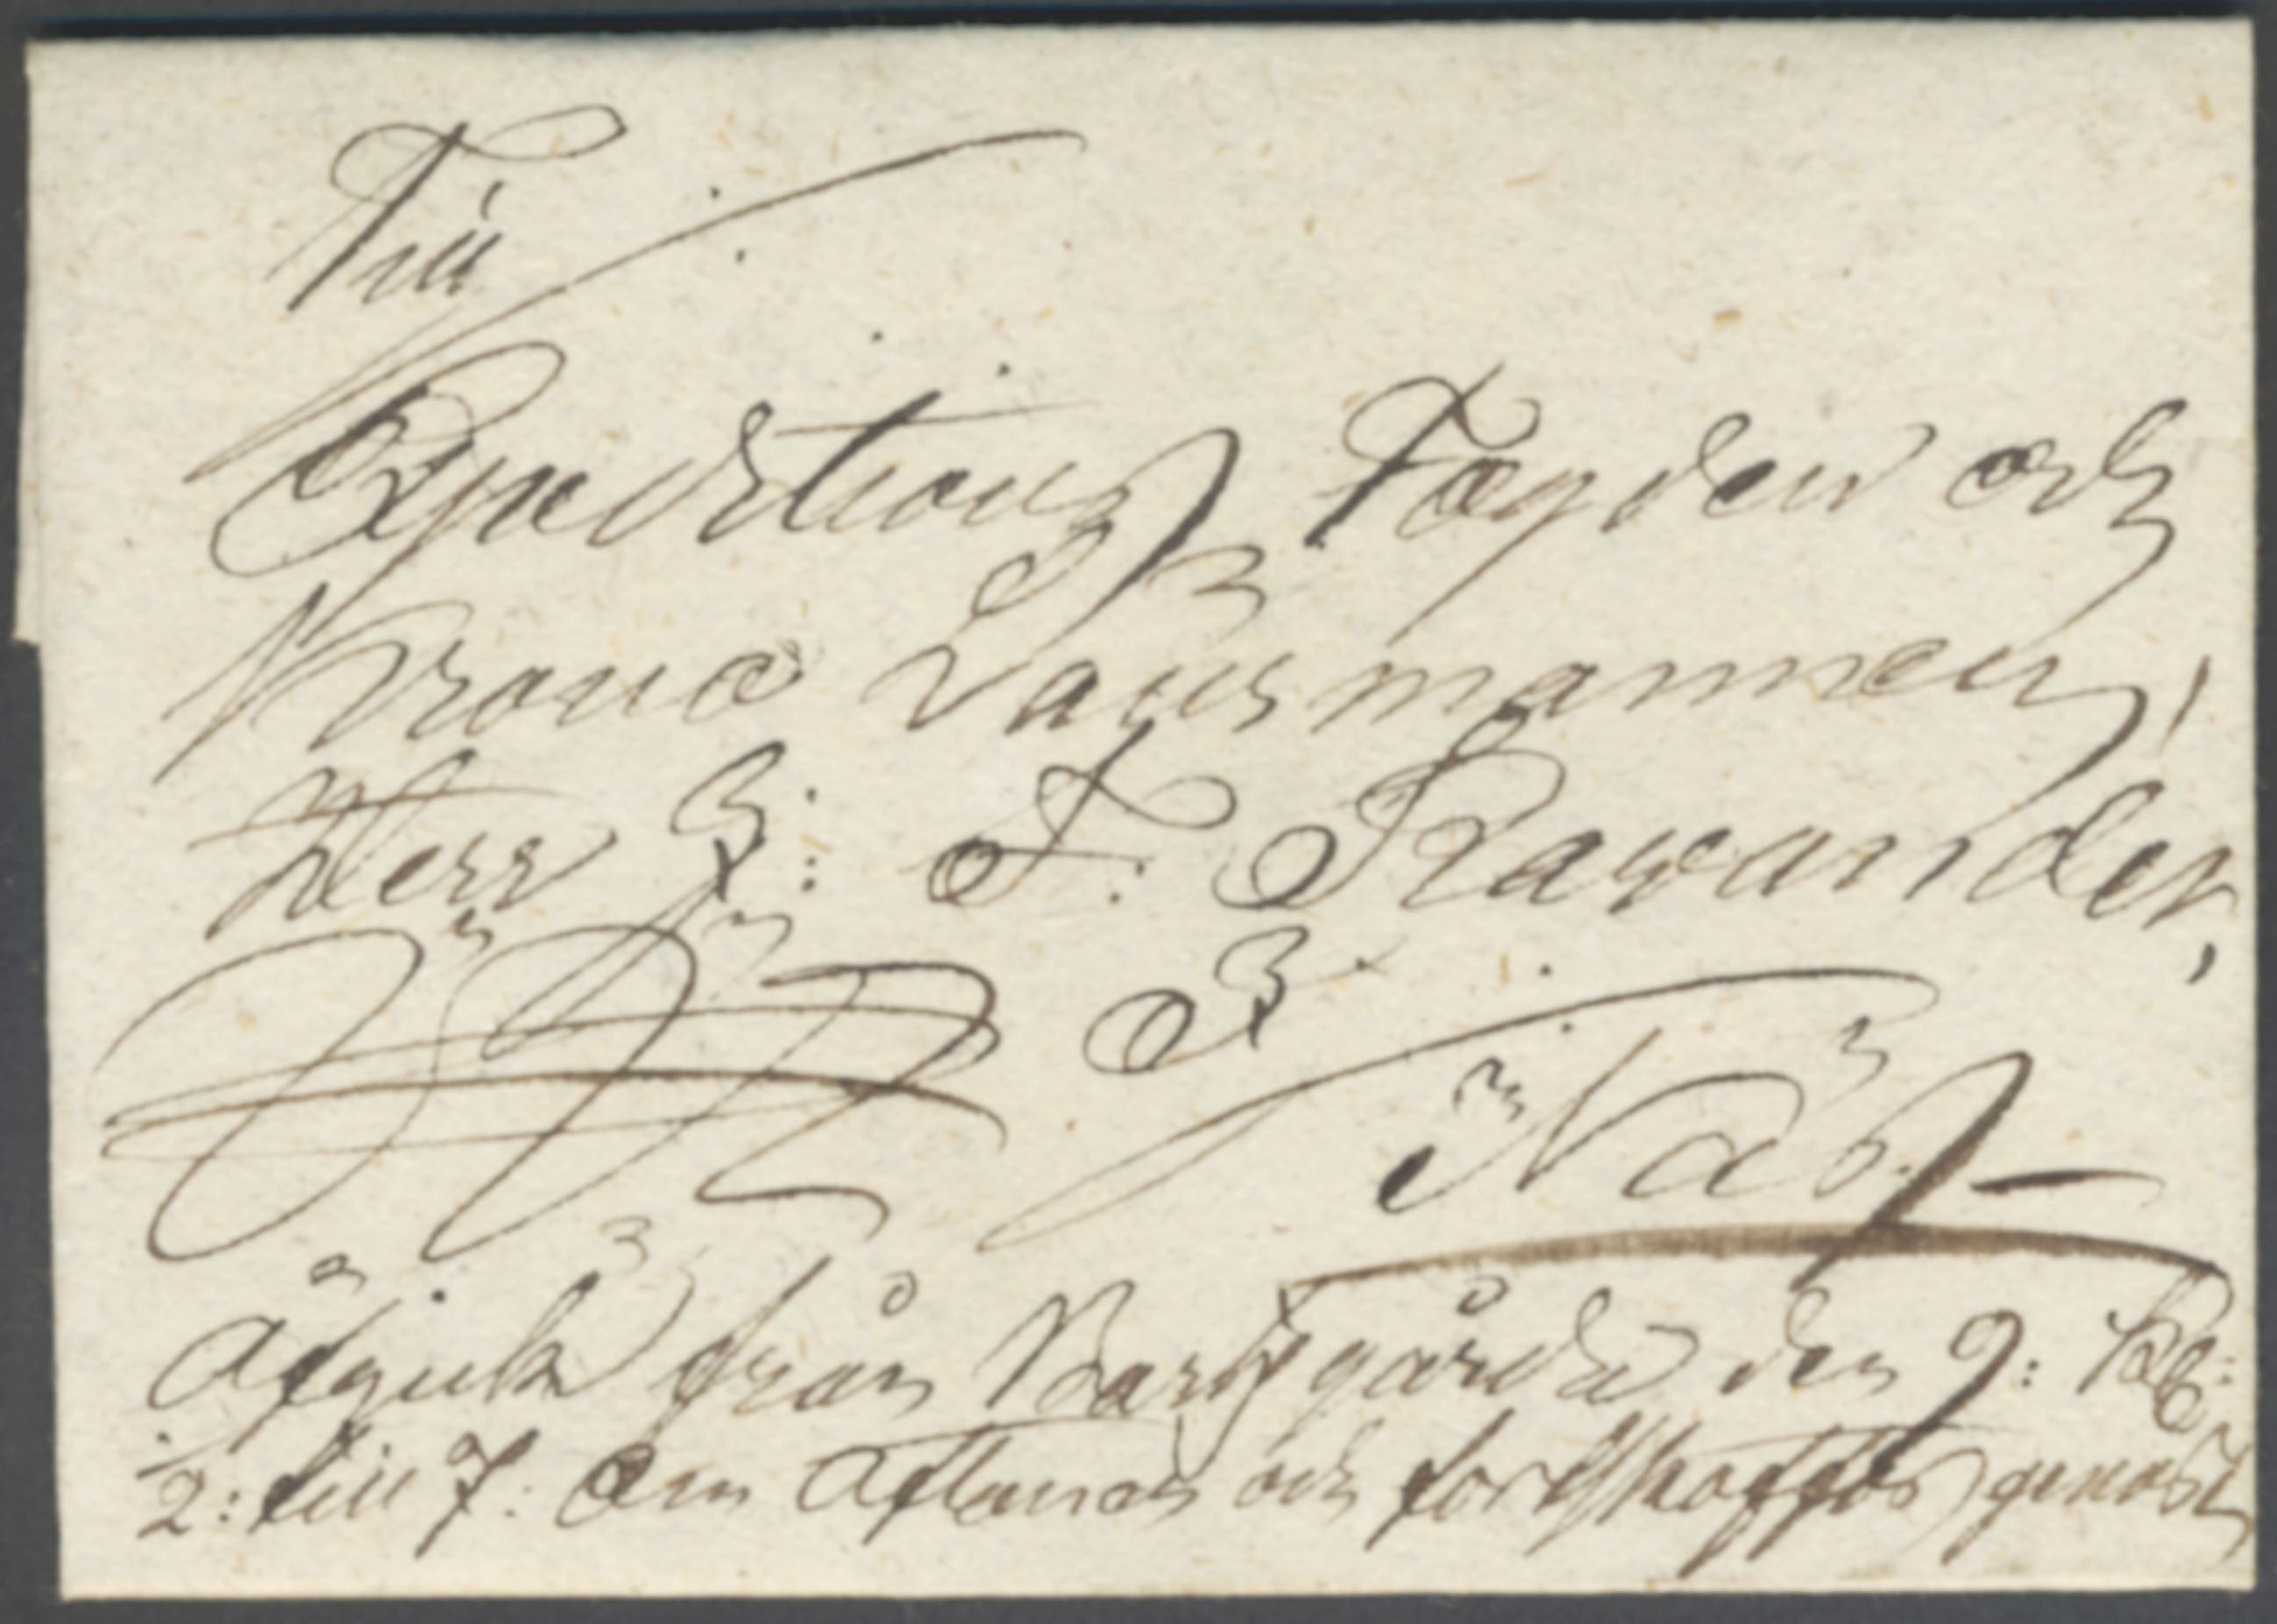 Till
Expeditions Fogden och
Krono Länsmannen,
Herr J: F: Ravander,
i
Näs
Afgick från Bastgärde den 9: Feb:
2: till 7: om Aftonen och fortskaffas genast